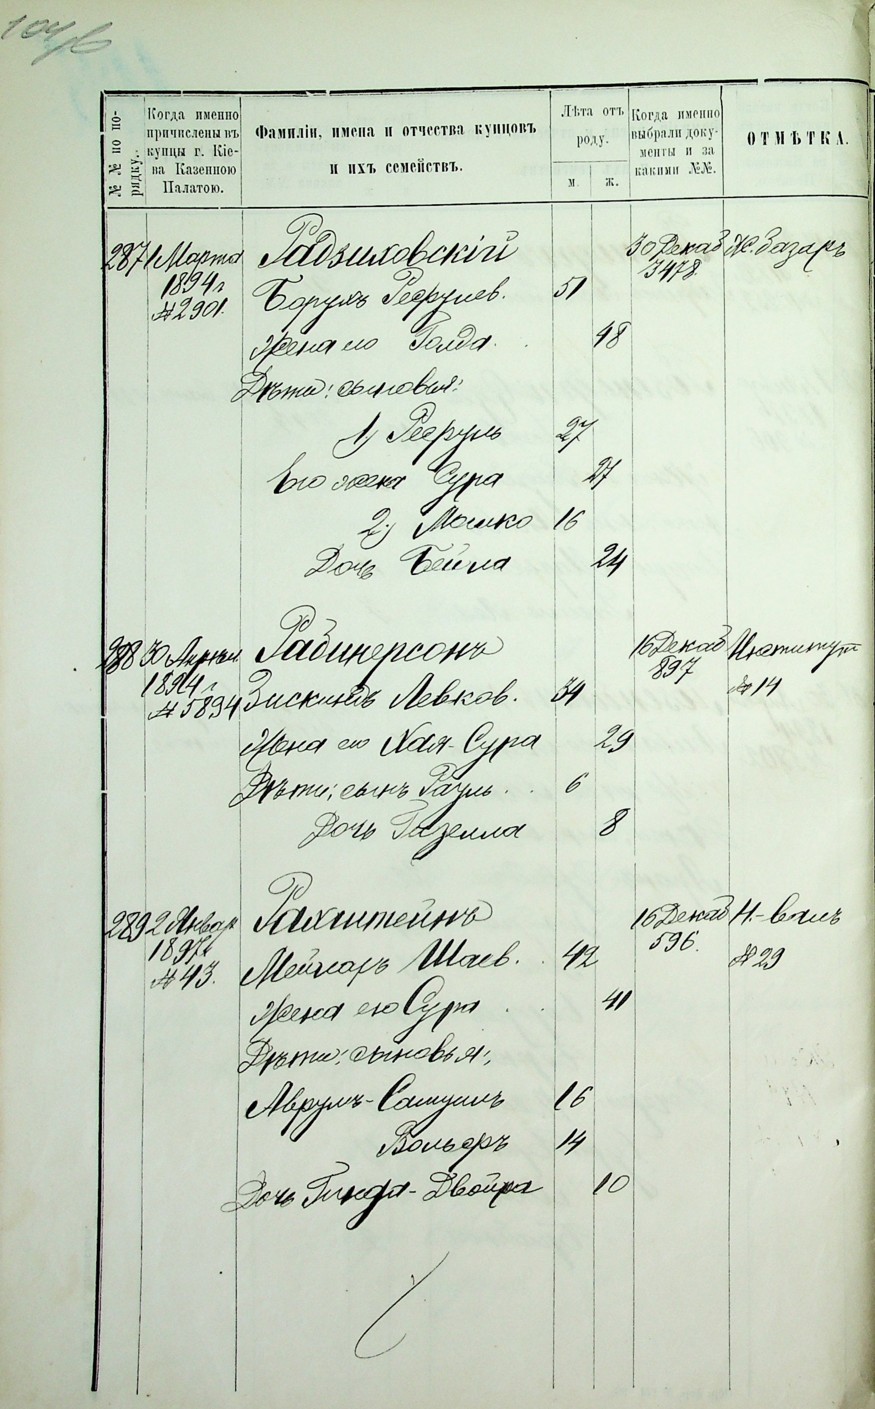 № № по порядку.
Когда именно причислены въ купцы г. Кіева Казенною Палатою.
Фамиліи, имена и отчества купцовъ и ихъ семействъ.
Лѣта отъ роду.
м.
ж.
Когда именно выбрали документы и за какими №№.
ОТМѢТКА.
287 1 Марта Радзиховскій 30 Декаб Ж. базаръ
1894 г 3478
№ 2901. Борухъ Рефулев. 51
Жена его Голда. 48
Дѣти: сыновья:
1) Рефуль 27
Его жена Сура 27
2) Мошко 16
Дочь Бейла 24
288 30 Апрѣл Рабинерсонъ 16 Декаб Институт
1894 г 897 № 14
№ 5894 Зискиндъ Левков. 34
Жена его Хая-Сура 29
Дѣти: сынъ Рауль 6
Дочь Гизелла 8
289 2 Январ Рахштейнъ 16 Декаб Н.-валъ
1897 г 596. № 29
№ 43. Шаев. 42
Жена его Сура 41
Дѣти: сыновья:
Аврумъ-Самуилъ 16
Вольфъ 14
Дочь Гинда-Двойра 10